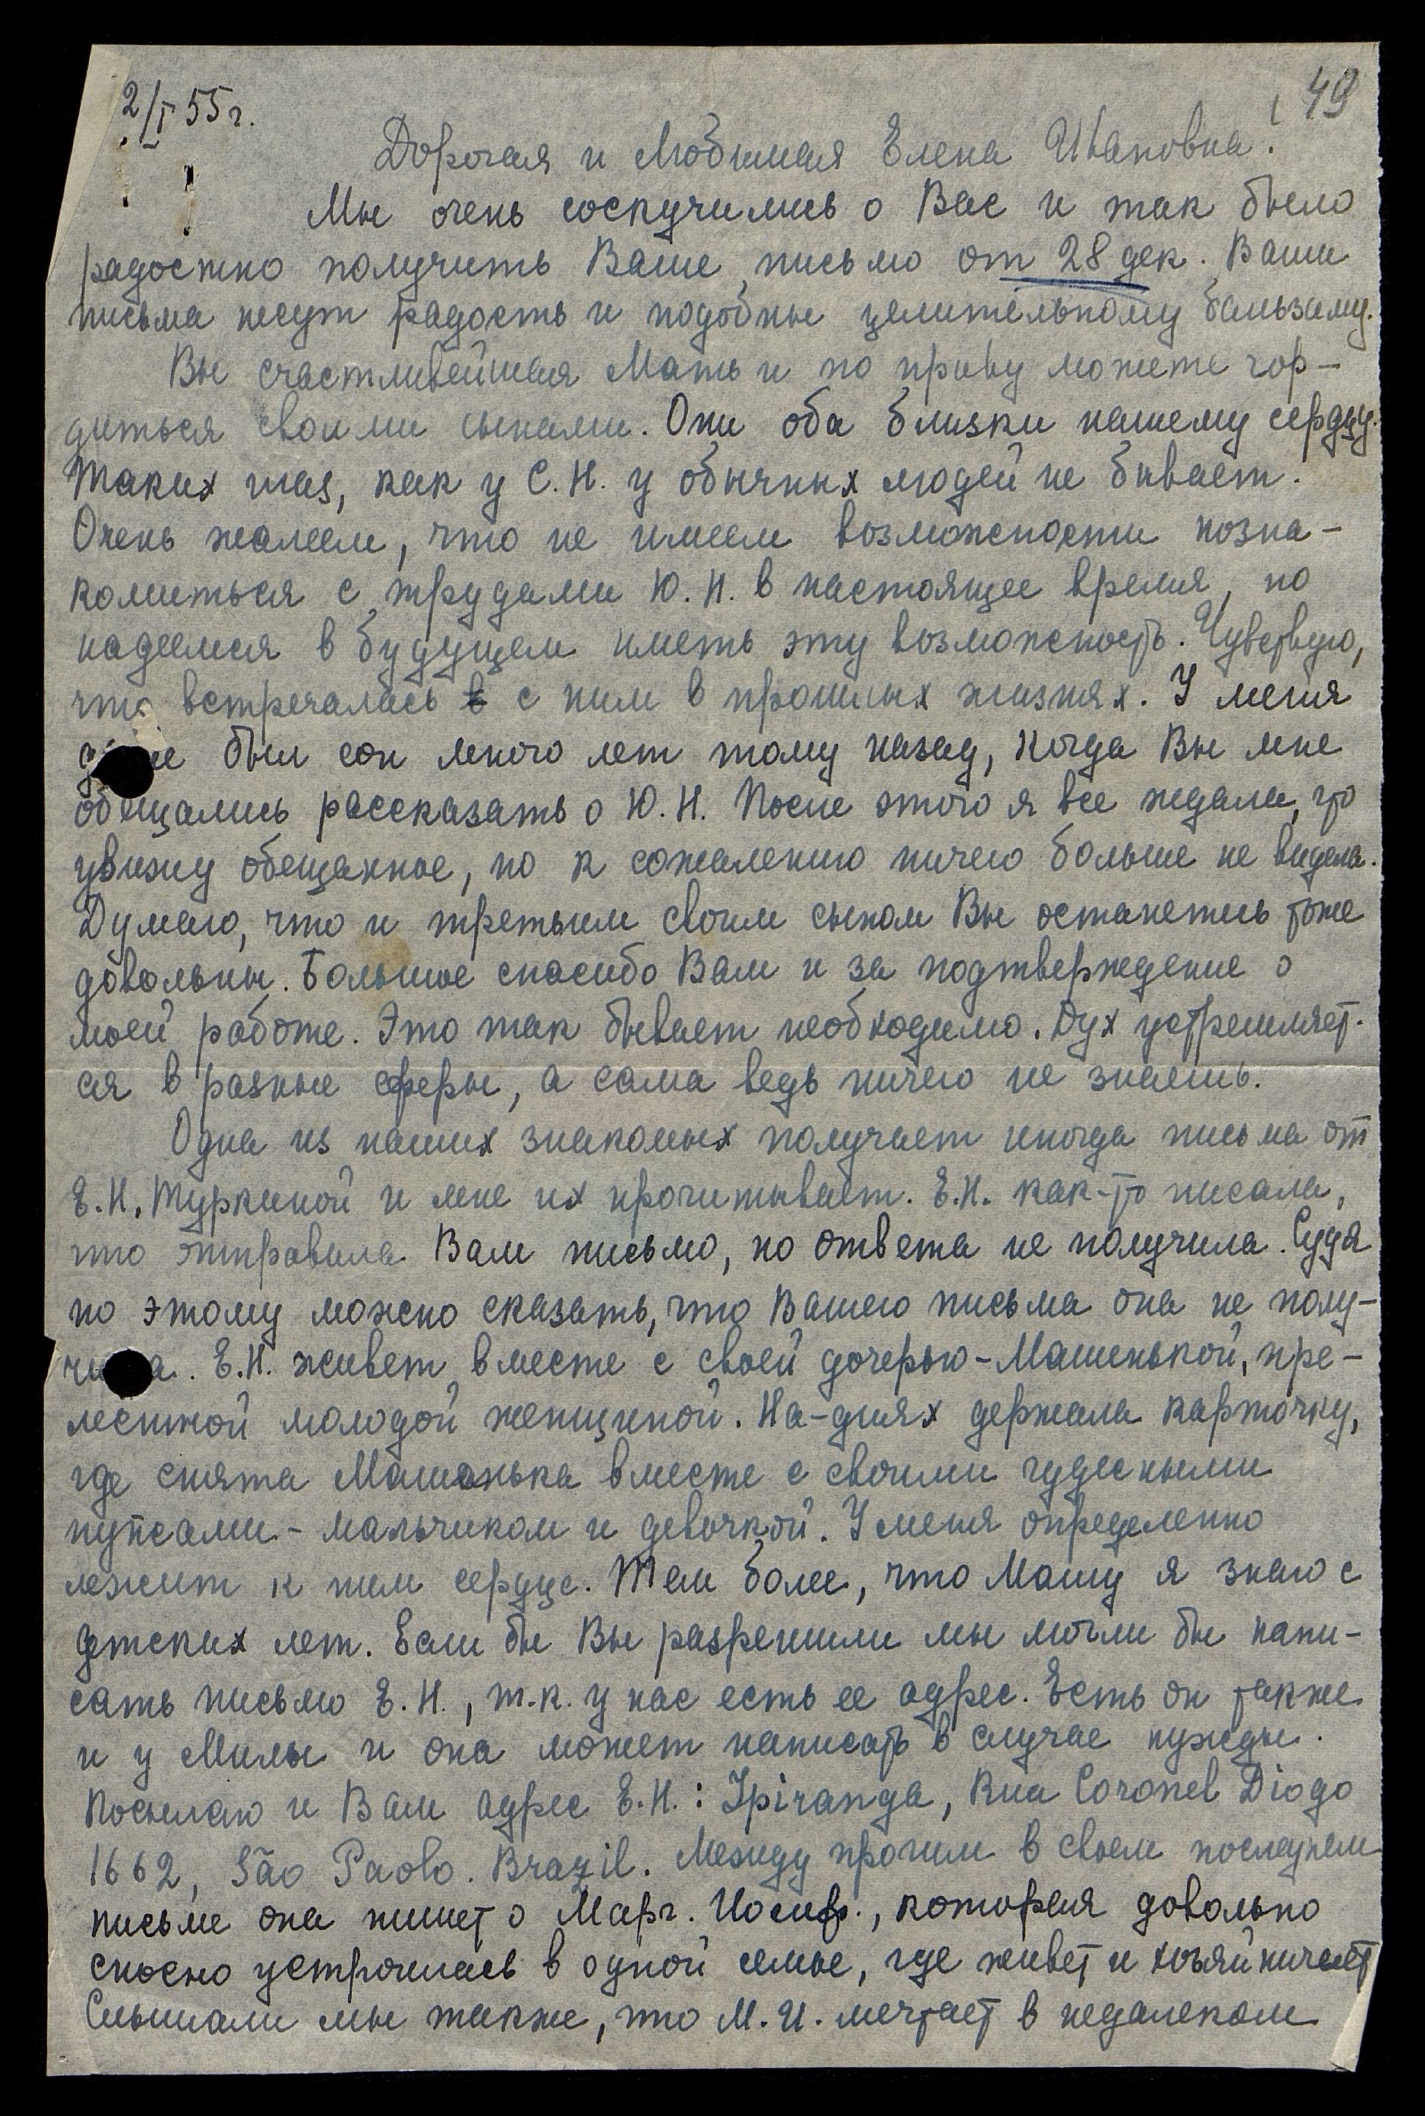 49
2/I 55г.
Дорогая и Любимая Елена Ивановна!
Мы очень соскучились о Вас и так было
радостно получить Ваше письмо от 28 дек. Ваши
письма несут радость и подобны целительному бальзаму.
Вы счастливейшая Мать и по праву можете гор-
диться своими сынами. Они оба близки нашему сердцу.
Таких глаз, как у С.Н. у обычных людей не бывает.
Очень жалеем, что не имеем возможности позна-
комиться с трудами Ю.Н. в настоящее время, но
надеемся в будущем иметь эту возможность. Чувствую,
что встречалась с ним в прошлых жизнях. У меня
был сон много лет тому назад, когда Вы мне
обещались рассказать о Ю.Н. После этого я все ждала, что
увижу обещанное, но к сожалению ничего больше не видела.
Думаю, что и третьим своим сыном Вы останетесь тоже
довольны. Большое спасибо Вам и за подтверждение о
моей работе. Это так бывает необходимо. Дух устремляет-
ся в разные сферы, а сама ведь ничего не знаешь.
Одна из наших знакомых получает иногда письма от
Е.Н. Туркиной и мне их прочитывает. Е.Н. как-то писала,
что отправила Вам письмо, но ответа не получила. Судя
по этому можно сказать, что Вашего письма она не полу-
чила. Е.Н. живет вместе с своей дочерью-Машенькой, пре-
лестной молодой женщиной. На-днях держала карточку,
где снята Машенька вместе с своими чудесными
пупсами - мальчиком и девочкой. У меня определенно
лежит к ним сердце. Тем более, что Машу я знаю с
детских лет. Если бы Вы разрешили мы могли бы напи-
сать письмо Е.Н., т.к. у нас есть ее адрес. Есть он также
и у Милы и она может написать в случае нужды.
Посылаю и Вам адрес Е.Н.: Ipiranga, Rua Coronel Diogo
1662, São Paolo. Brazil. Между прочим в своем последнем
письме она пишет о Марг. Иосиф., которая довольно
сносно устроилась в одной семье, где живет и хозяйничает
Слышали мы также, что М.И. мечтает в недалеком